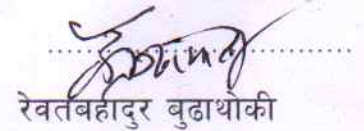 रेवतबहादुर बुढाथोकी